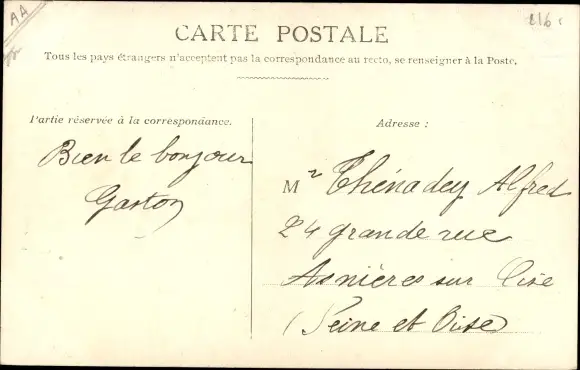 AA
216
CARTE POSTALE
Tous les pays étrangers n'acceptent pas la correspondance au recto, se renseigner à la Poste.
Partie réservée à la correspondance.
Bien le bonjour
Gaston
Adresse :
Mr Thénadey Alfred
24 grande rue
Asnières sur Oise
(Seine et Oise)